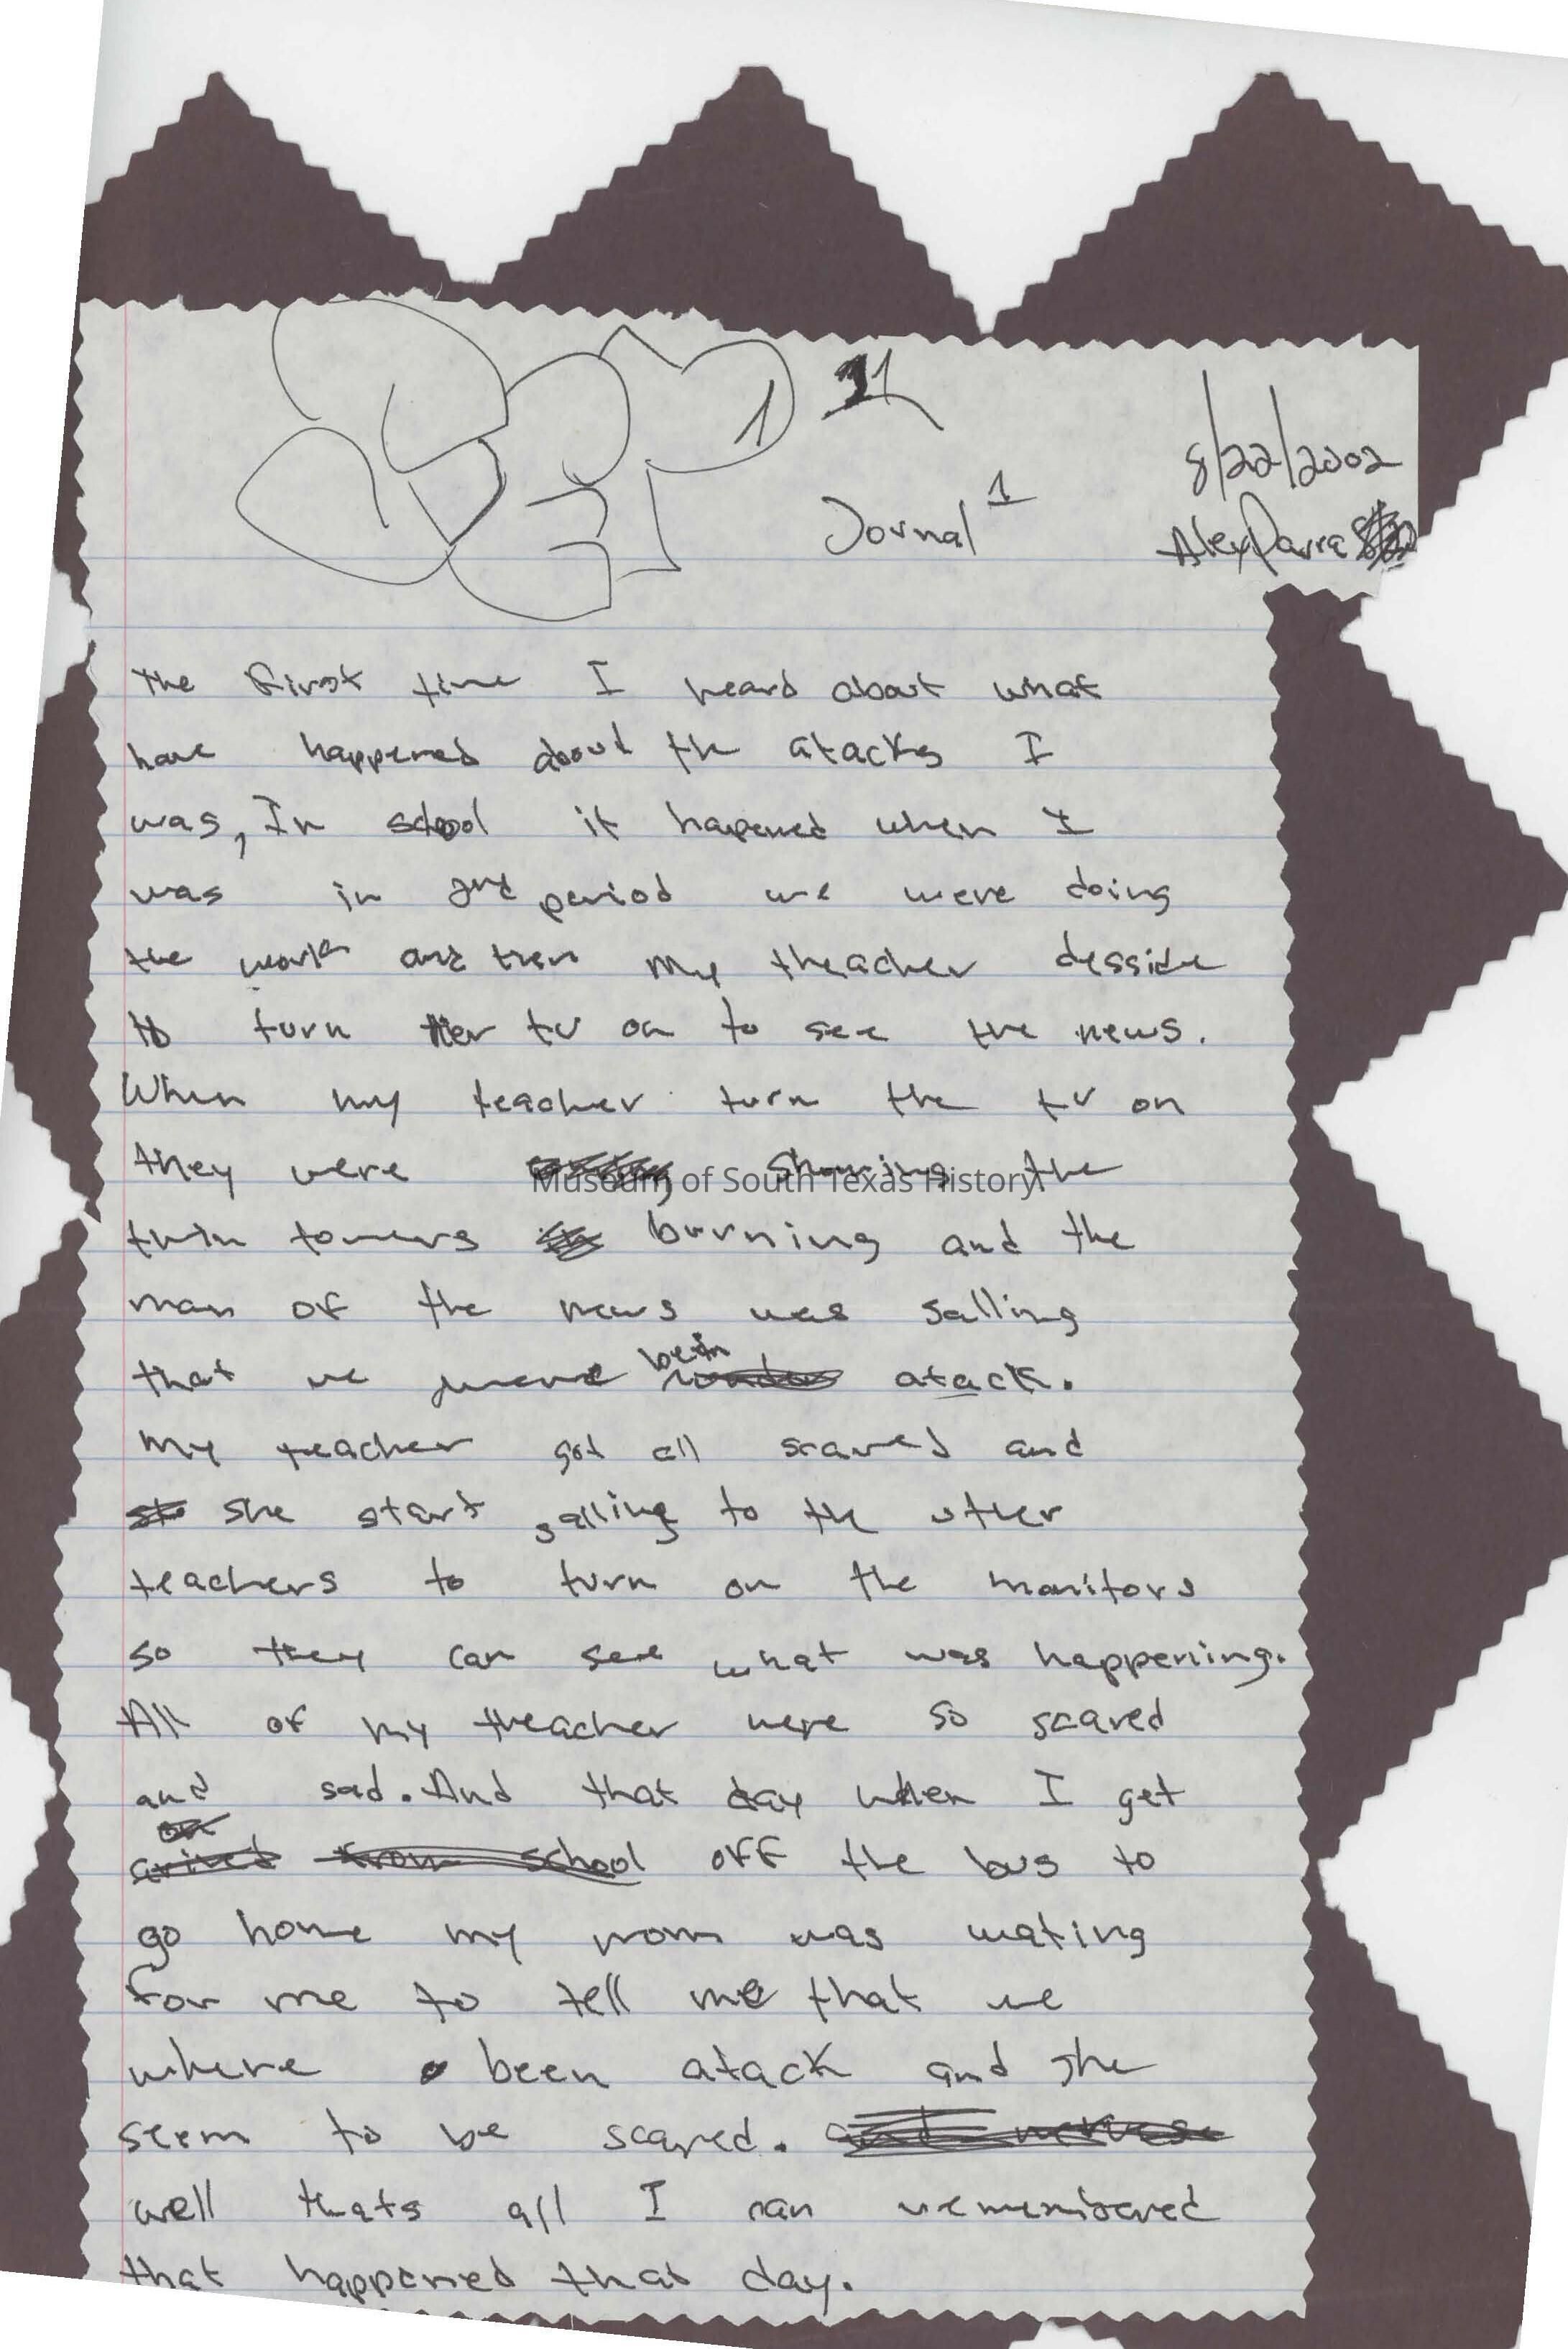 Sep 11
Jornal 1
8/22/2002
Alex Parra
The first time I heard about what
have happened about the atacks I
was, In school it hapened when I
was in 2nd period we were doing
the work and then my theacher desside
to turn her tv on to see the news.
When my teacher turn the tv on
they were showing the
twin towers burning and the
man of the news was salling
that we were bein atack.
My teacher got all scared and
she start salling to the other
teachers to turn on the monitors
so they can see what was happening.
All of my theacher were so scared
and sad. And that day when I get
arived from school off the bus to
go home my mom was wating
for me to tell me that we
where been atack and she
seem to be scared. and nervese
well thats all I can remembered
that happened that day.
Museum of South Texas History